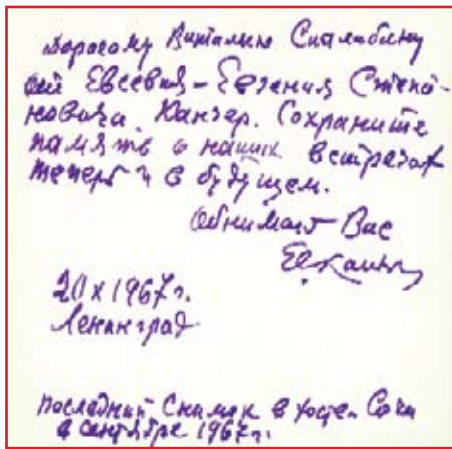 Дорогому Виталию
от Евсевия-Евгения Степа-
новича Канчер. Сохраните
память о наших встречах
теперь и в будущем.
Обнимаю Вас
20 X 1967г.
Ленинград
последний снимок в Хосте. Сочи
в сентябре 1967г.